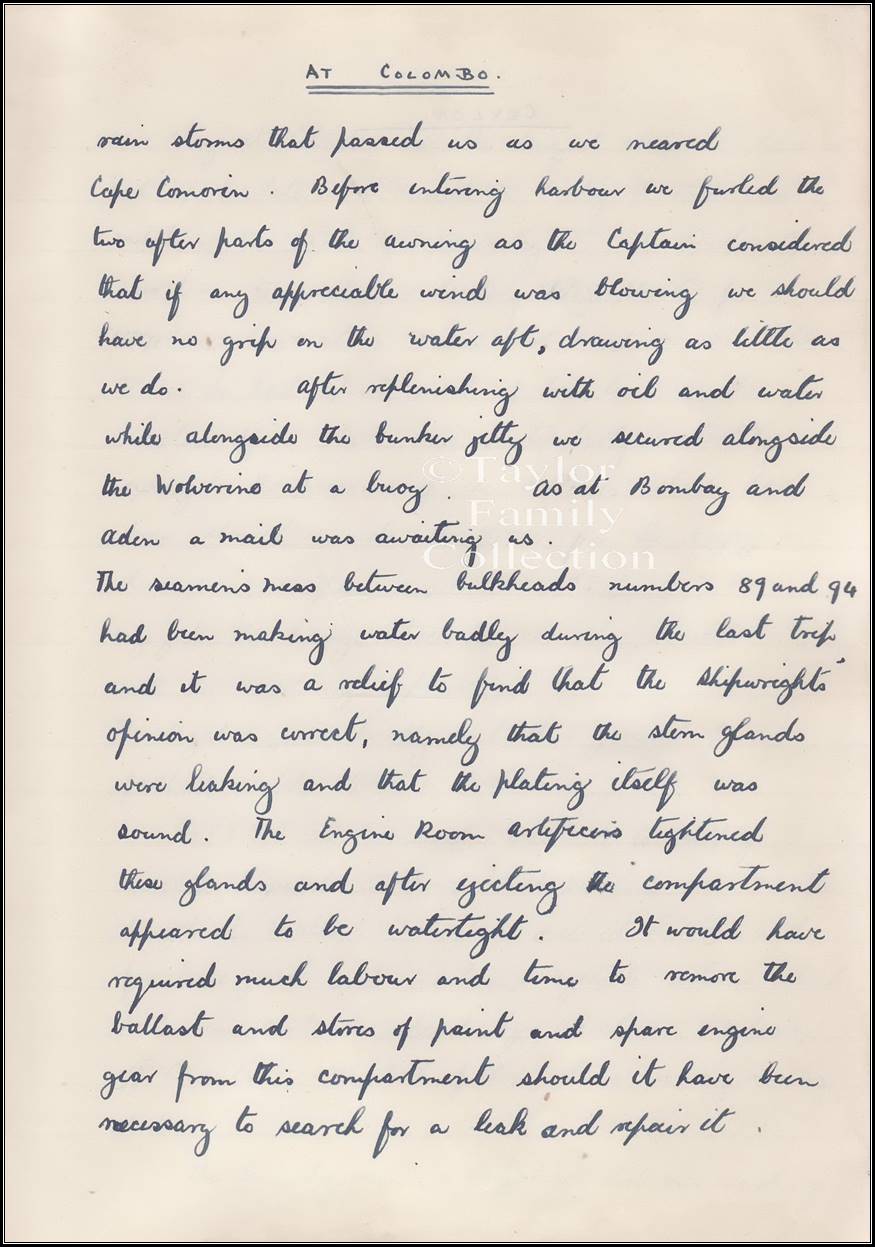 AT COLOMBO.
rain storms that passed us as we neared
Cape Comorin. Before entering harbour we furled the
two after parts of the awning as the Captain considered
that if any appreciable wind was blowing we should
have no grip on the water aft, drawing as little as
we do. After replenishing with oil and water
while alongside the bunker jetty we secured alongside
the Wolverine at a buoy. As at Bombay and
Aden a mail was awaiting us.
The seamen's mess between bulkheads numbers 89 and 94
had been making water badly during the last trip
and it was a relief to find that the shipwrights'
opinion was correct, namely that the stern glands
were leaking and that the plating itself was
sound. The Engine Room artificers tightened
these glands and after ejecting the compartment
appeared to be watertight. It would have
required much labour and time to remove the
ballast and stores of paint and spare engine
gear from this compartment should it have been
necessary to search for a leak and repair it.
©Taylor
Family
Collection